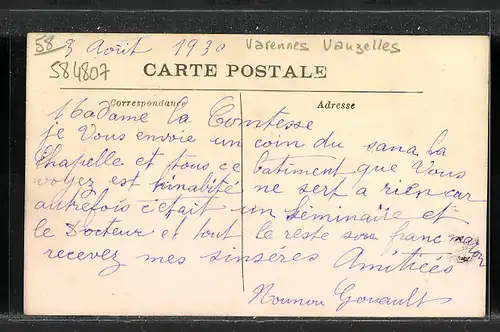 58 8 Août 1930 Varennes Vauzelles
584807
CARTE POSTALE
Correspondance Adresse
Madame la Comtesse
je Vous envoie un coin du sana la
Chapelle et tous ce batiment que Vous
voyez est hinabité ne sert a rien car
autrefois c'était un séminaire et
le Docteur et tout le reste son franc maçon
recevez mes sinséres Amitiées
Nounou Gouault